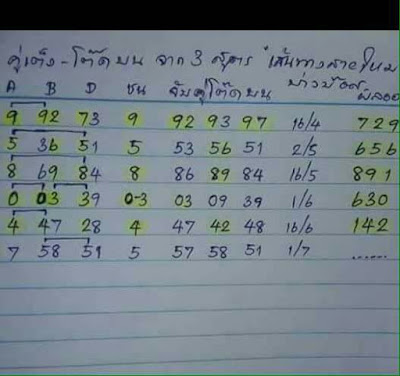 คู่เต็ง - โต๊ดบน จาก 3 สูตร "เส้นทางสายใหม่
A B D ชน จับคู่โต๊ดบน ผลออก
9 92 73 9 92 93 97 16/4 729
5 36 51 5 53 56 51 2/5 656
8 69 84 8 86 89 84 16/5 891
0 03 39 0-3 03 09 39 1/6 630
4 47 28 4 47 42 48 16/6 142
7 58 51 5 57 58 51 1/7 ......